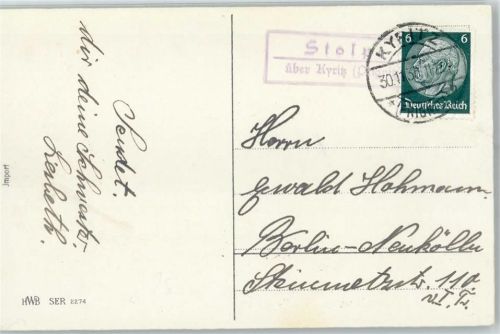 Sendet.
dir deine Schwester
Import
HWB SER 2274
Stolp
über Kyritz
KYRITZ
30.11.
6 6
Deutsches Reich
Herrn
Ewald Hohmann
Berlin-Neukölln
Steinmetzstr. 110.